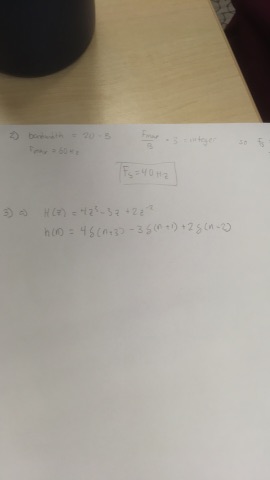 2) bandwidth = 20 = B Fmax/B = 3 = integer so Fs
Fmax = 60 Hz
Fs = 40 Hz
3) a) H(z) = 4z³ - 3z + 2z⁻²
h(n) = 4δ(n+3) - 3δ(n+1) + 2δ(n-2)